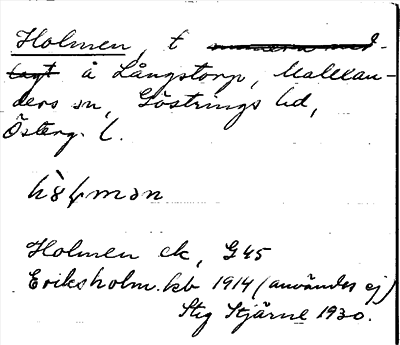 Holmen, t
å Långstorp, Mallexan-
ders sn, Göstrings hd,
Österg. l.
Holmen ek, G45
Eriksholm. kb 1914 (användes ej)
Stig Stjärne 1930.